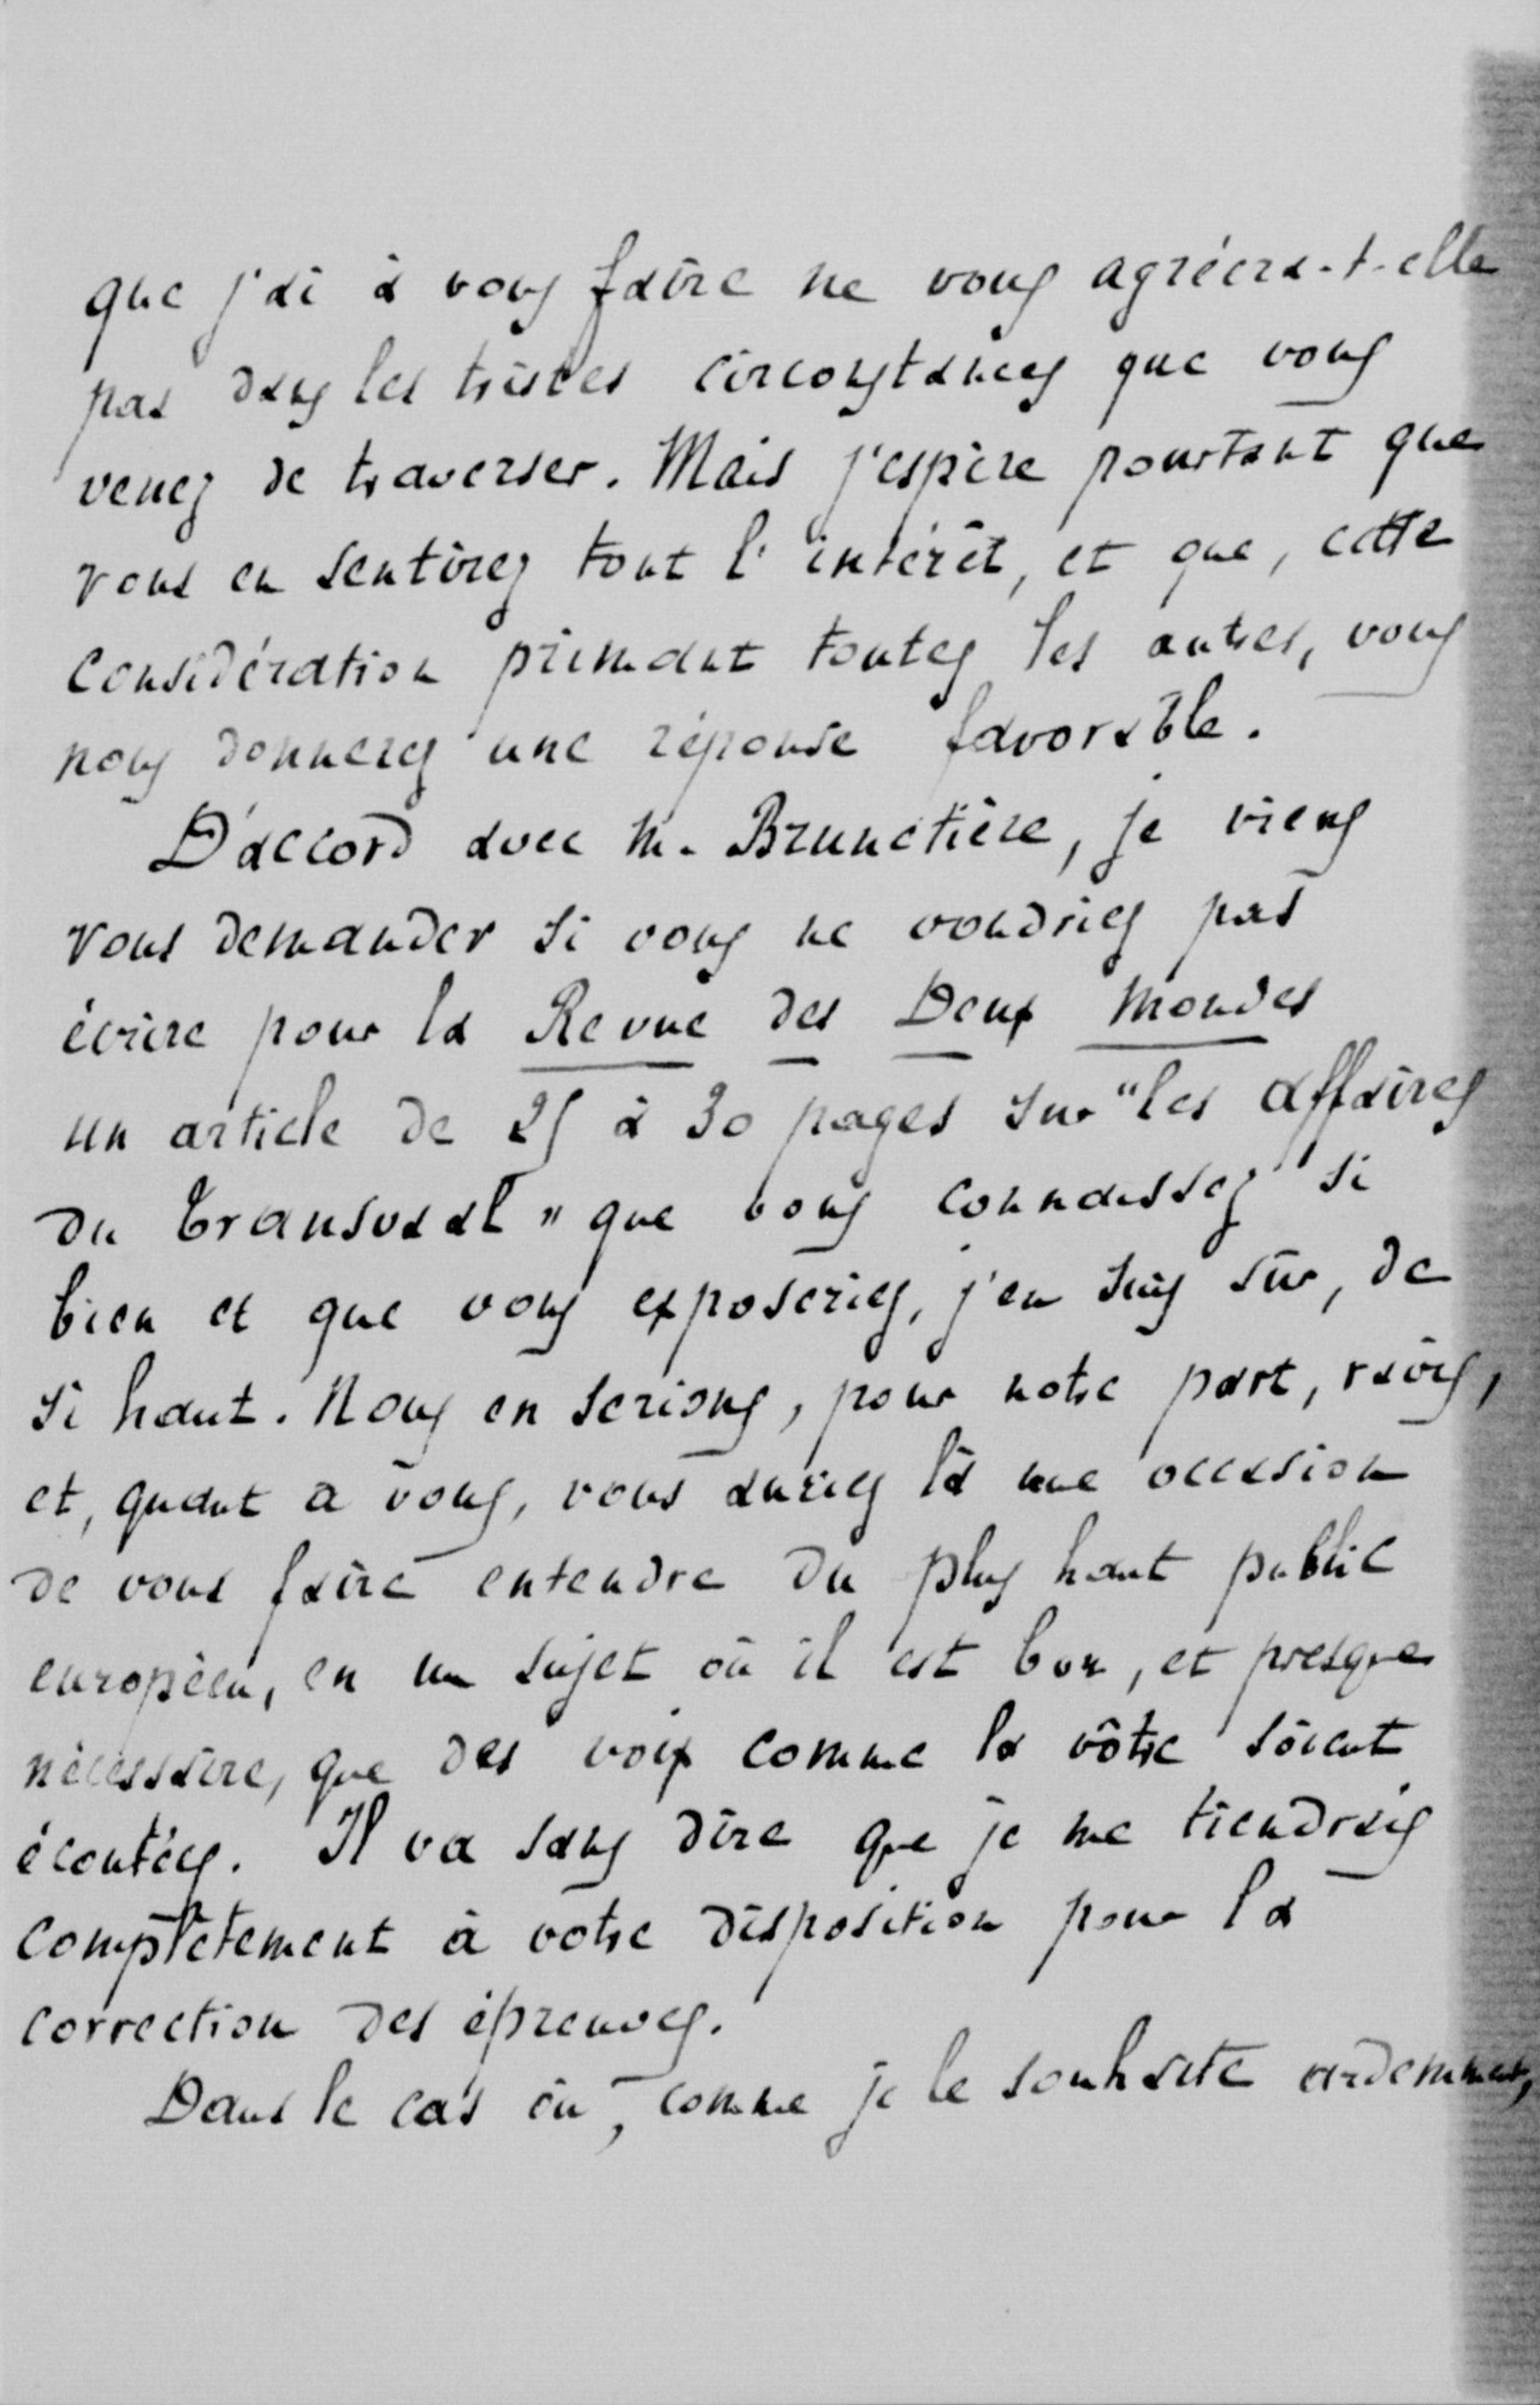 que j'ai à vous faire ne vous agréera-t-elle
pas dans les tristes circonstances que vous
venez de traverser. Mais j'espère pourtant que
vous en sentirez tout l'intérêt, et que, cette
considération primant toutes les autres, vous
nous donnerez une réponse favorable.
D'accord avec M. Brunetière, je viens
vous demander si vous ne voudriez pas
écrire pour la Revue des Deux Mondes
un article de 25 à 30 pages sur "les affaires
du Transvaal" que vous connaissez si
bien et que vous exposeriez, j'en suis sûr, de
si haut. Nous en serions, pour notre part, ravis,
et, quant à vous, vous auriez là une occasion
de vous faire entendre du plus haut public
européen, en un sujet où il est bon, et presque
nécessaire, que des voix comme la vôtre soient
écoutées. Il va sans dire que je me tiendrais
complètement à votre disposition pour la
correction des épreuves.
Dans le cas où, comme je le souhaite ardemment,